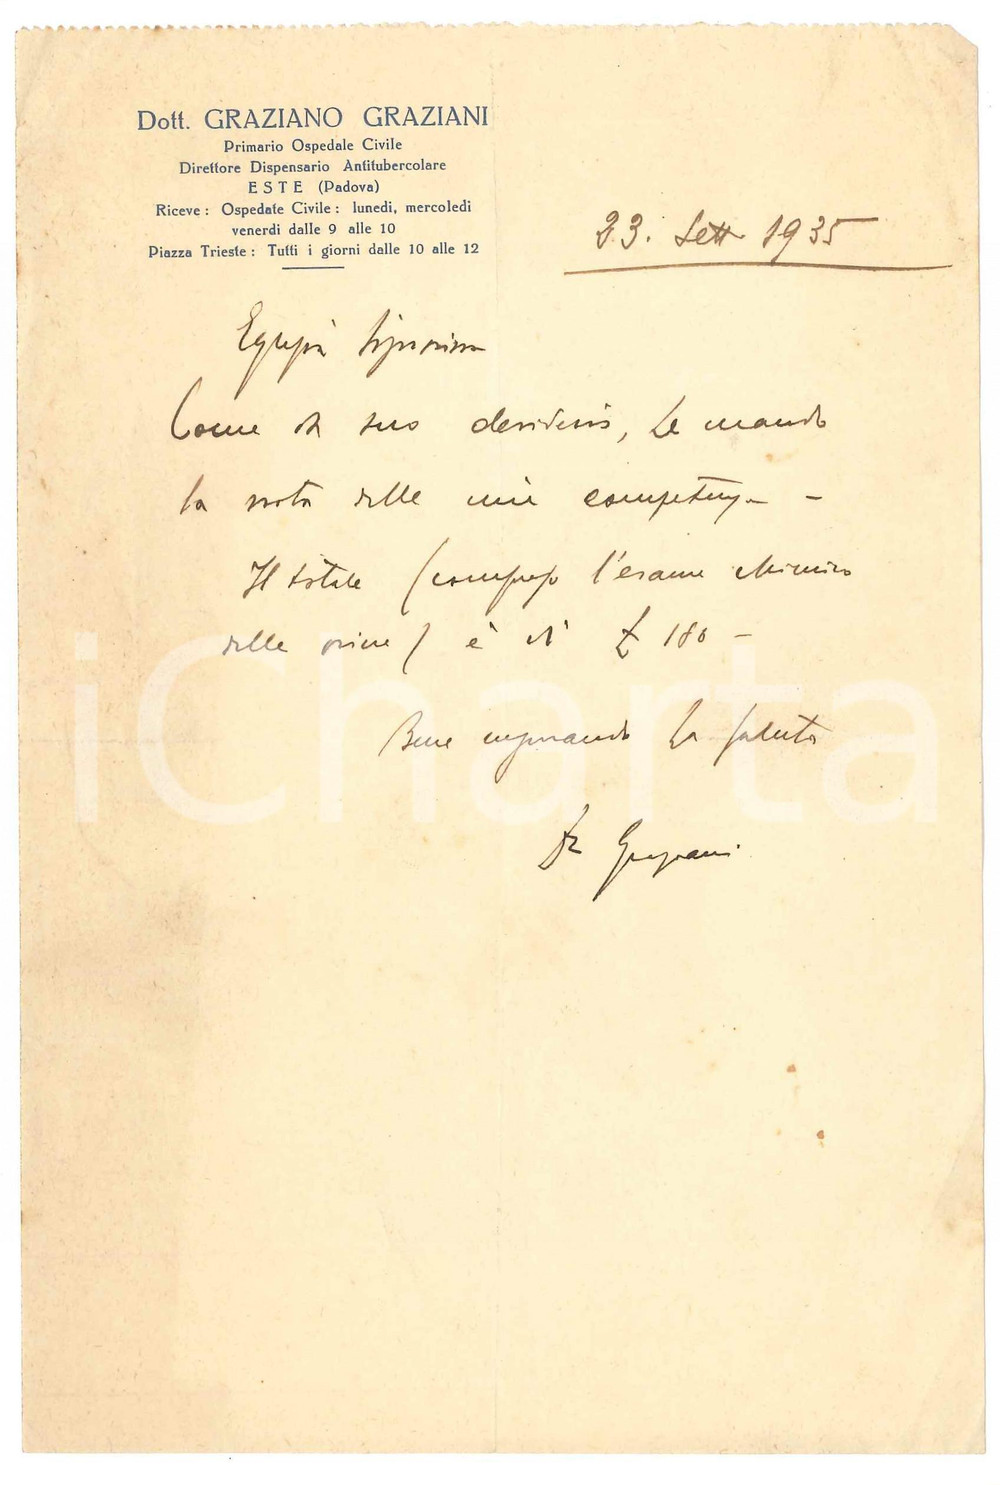 Dott. GRAZIANO GRAZIANI
Primario Ospedale Civile
Direttore Dispensario Antitubercolare
ESTE (Padova)
Riceve: Ospedale Civile: lunedi, mercoledi
venerdi dalle 9 alle 10
Piazza Trieste: Tutti i giorni dalle 10 alle 12
23. Sett 1935
Egregia Signorina
Come da suo desiderio, Le mando
la nota delle mie competenze -
Il totale (compreso l'esame chimico
delle orine) è di £ 180 -
Bene augurando La saluto
Dr Graziani
iCharta